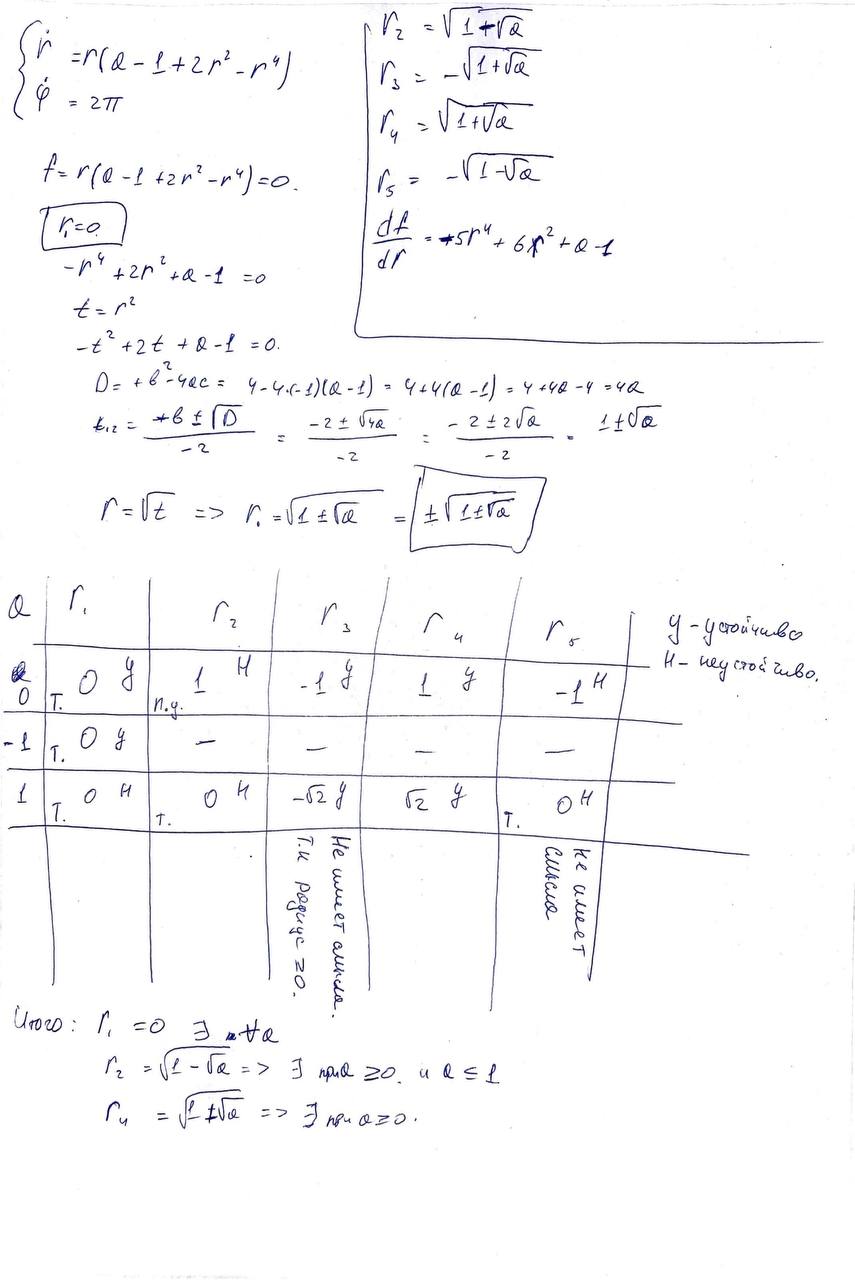 ṙ = r(a - 1 + 2r² - r⁴)
φ̇ = 2π
f = r(a - 1 + 2r² - r⁴) = 0.
r₁ = 0
-r⁴ + 2r² + a - 1 = 0
t = r²
-t² + 2t + a - 1 = 0.
D = +b² - 4ac = 4 - 4·(-1)(a - 1) = 4 + 4(a - 1) = 4 + 4a - 4 = 4a
t₁,₂ = (-b ± √D)/-2 = (-2 ± √4a)/-2 = (-2 ± 2√a)/-2 = 1 ± √a
r = √t => r. = √(1 ± √a) = ±√(1 ± √a)
r₂ = √(1 - √a)
r₃ = -√(1 + √a)
r₄ = √(1 + √a)
r₅ = -√(1 - √a)
df/dr = -5r⁴ + 6r² + a - 1
a r₁ r₂ r₃ r₄ r₅
0 т. 0 у п.у. 1 н -1 у 1 у -1 н
-1 т. 0 у — — — —
1 т. 0 н т. 0 н -√2 у √2 у т. 0 н
у - устойчиво
н - неустойчиво.
Не имеет смысла.
т.к радиус ≥ 0.
Не имеет
смысла
Итого: r₁ = 0 ∃ ∀a
r₂ = √(1 - √a) => ∃ при a ≥ 0. и a ≤ 1
r₄ = √(1 + √a) => ∃ при a ≥ 0.